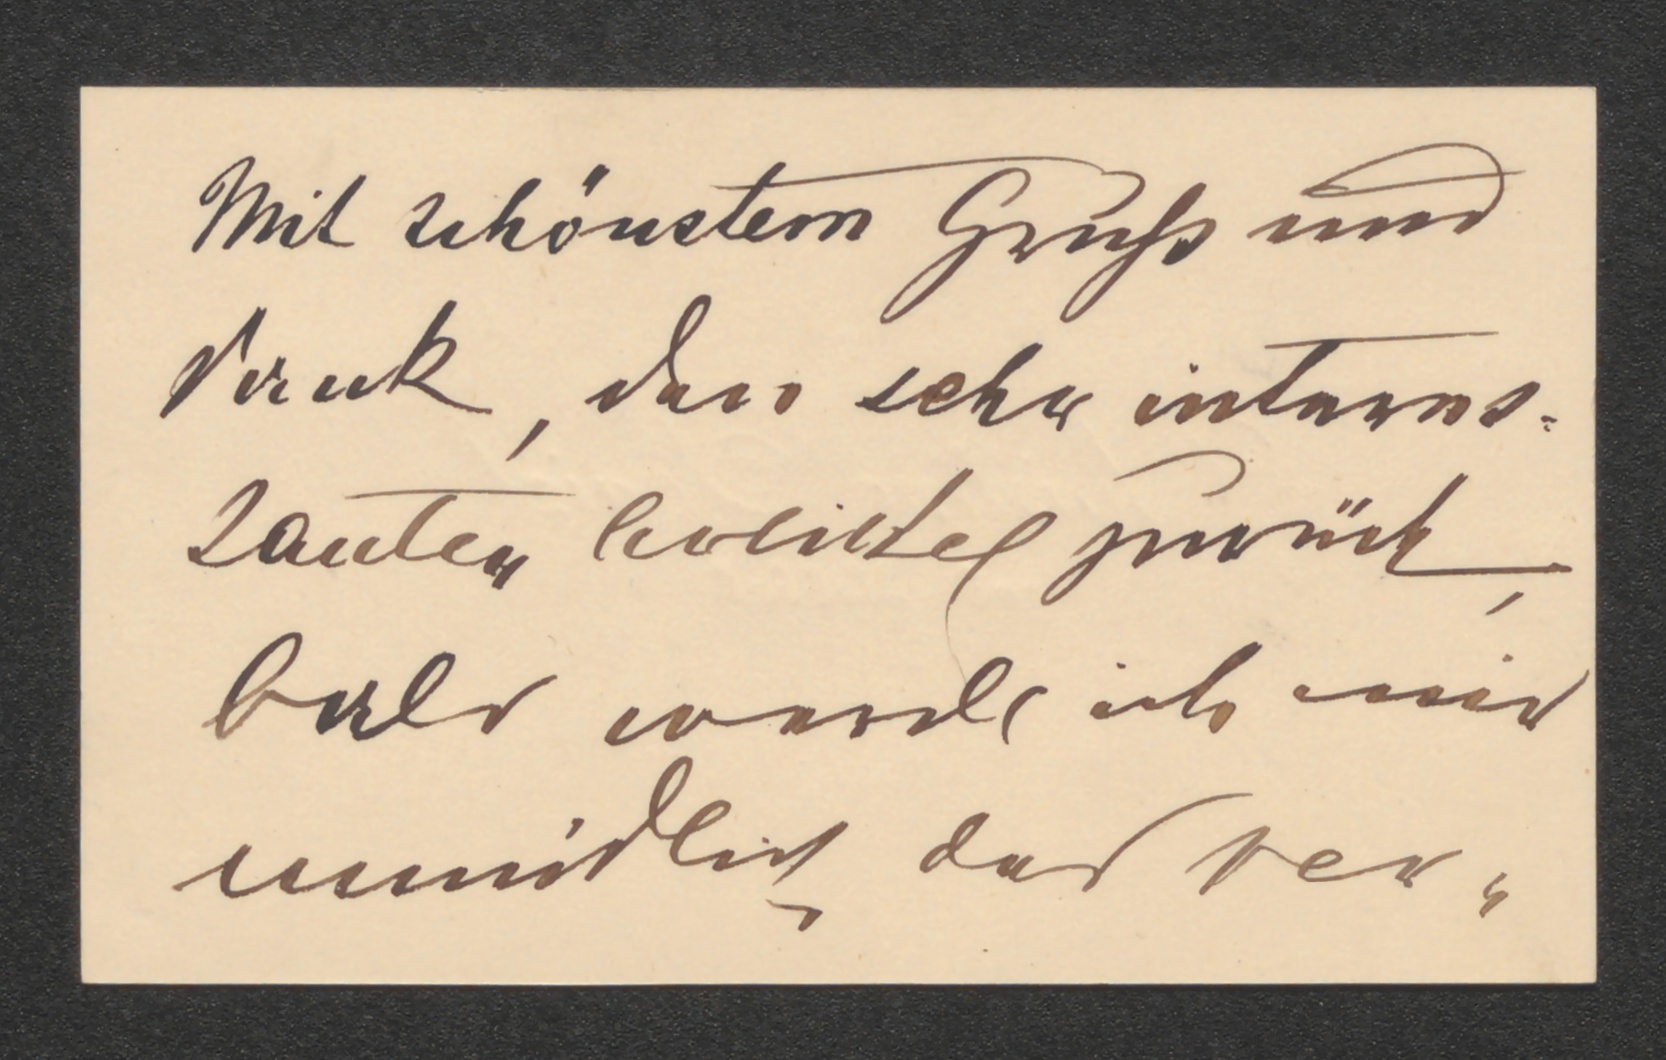 Mit schönstem Gruſs und
Dank, den sehr interes-
santen Artikel zurück,
bald werde ich mir
mündlich das Ver-